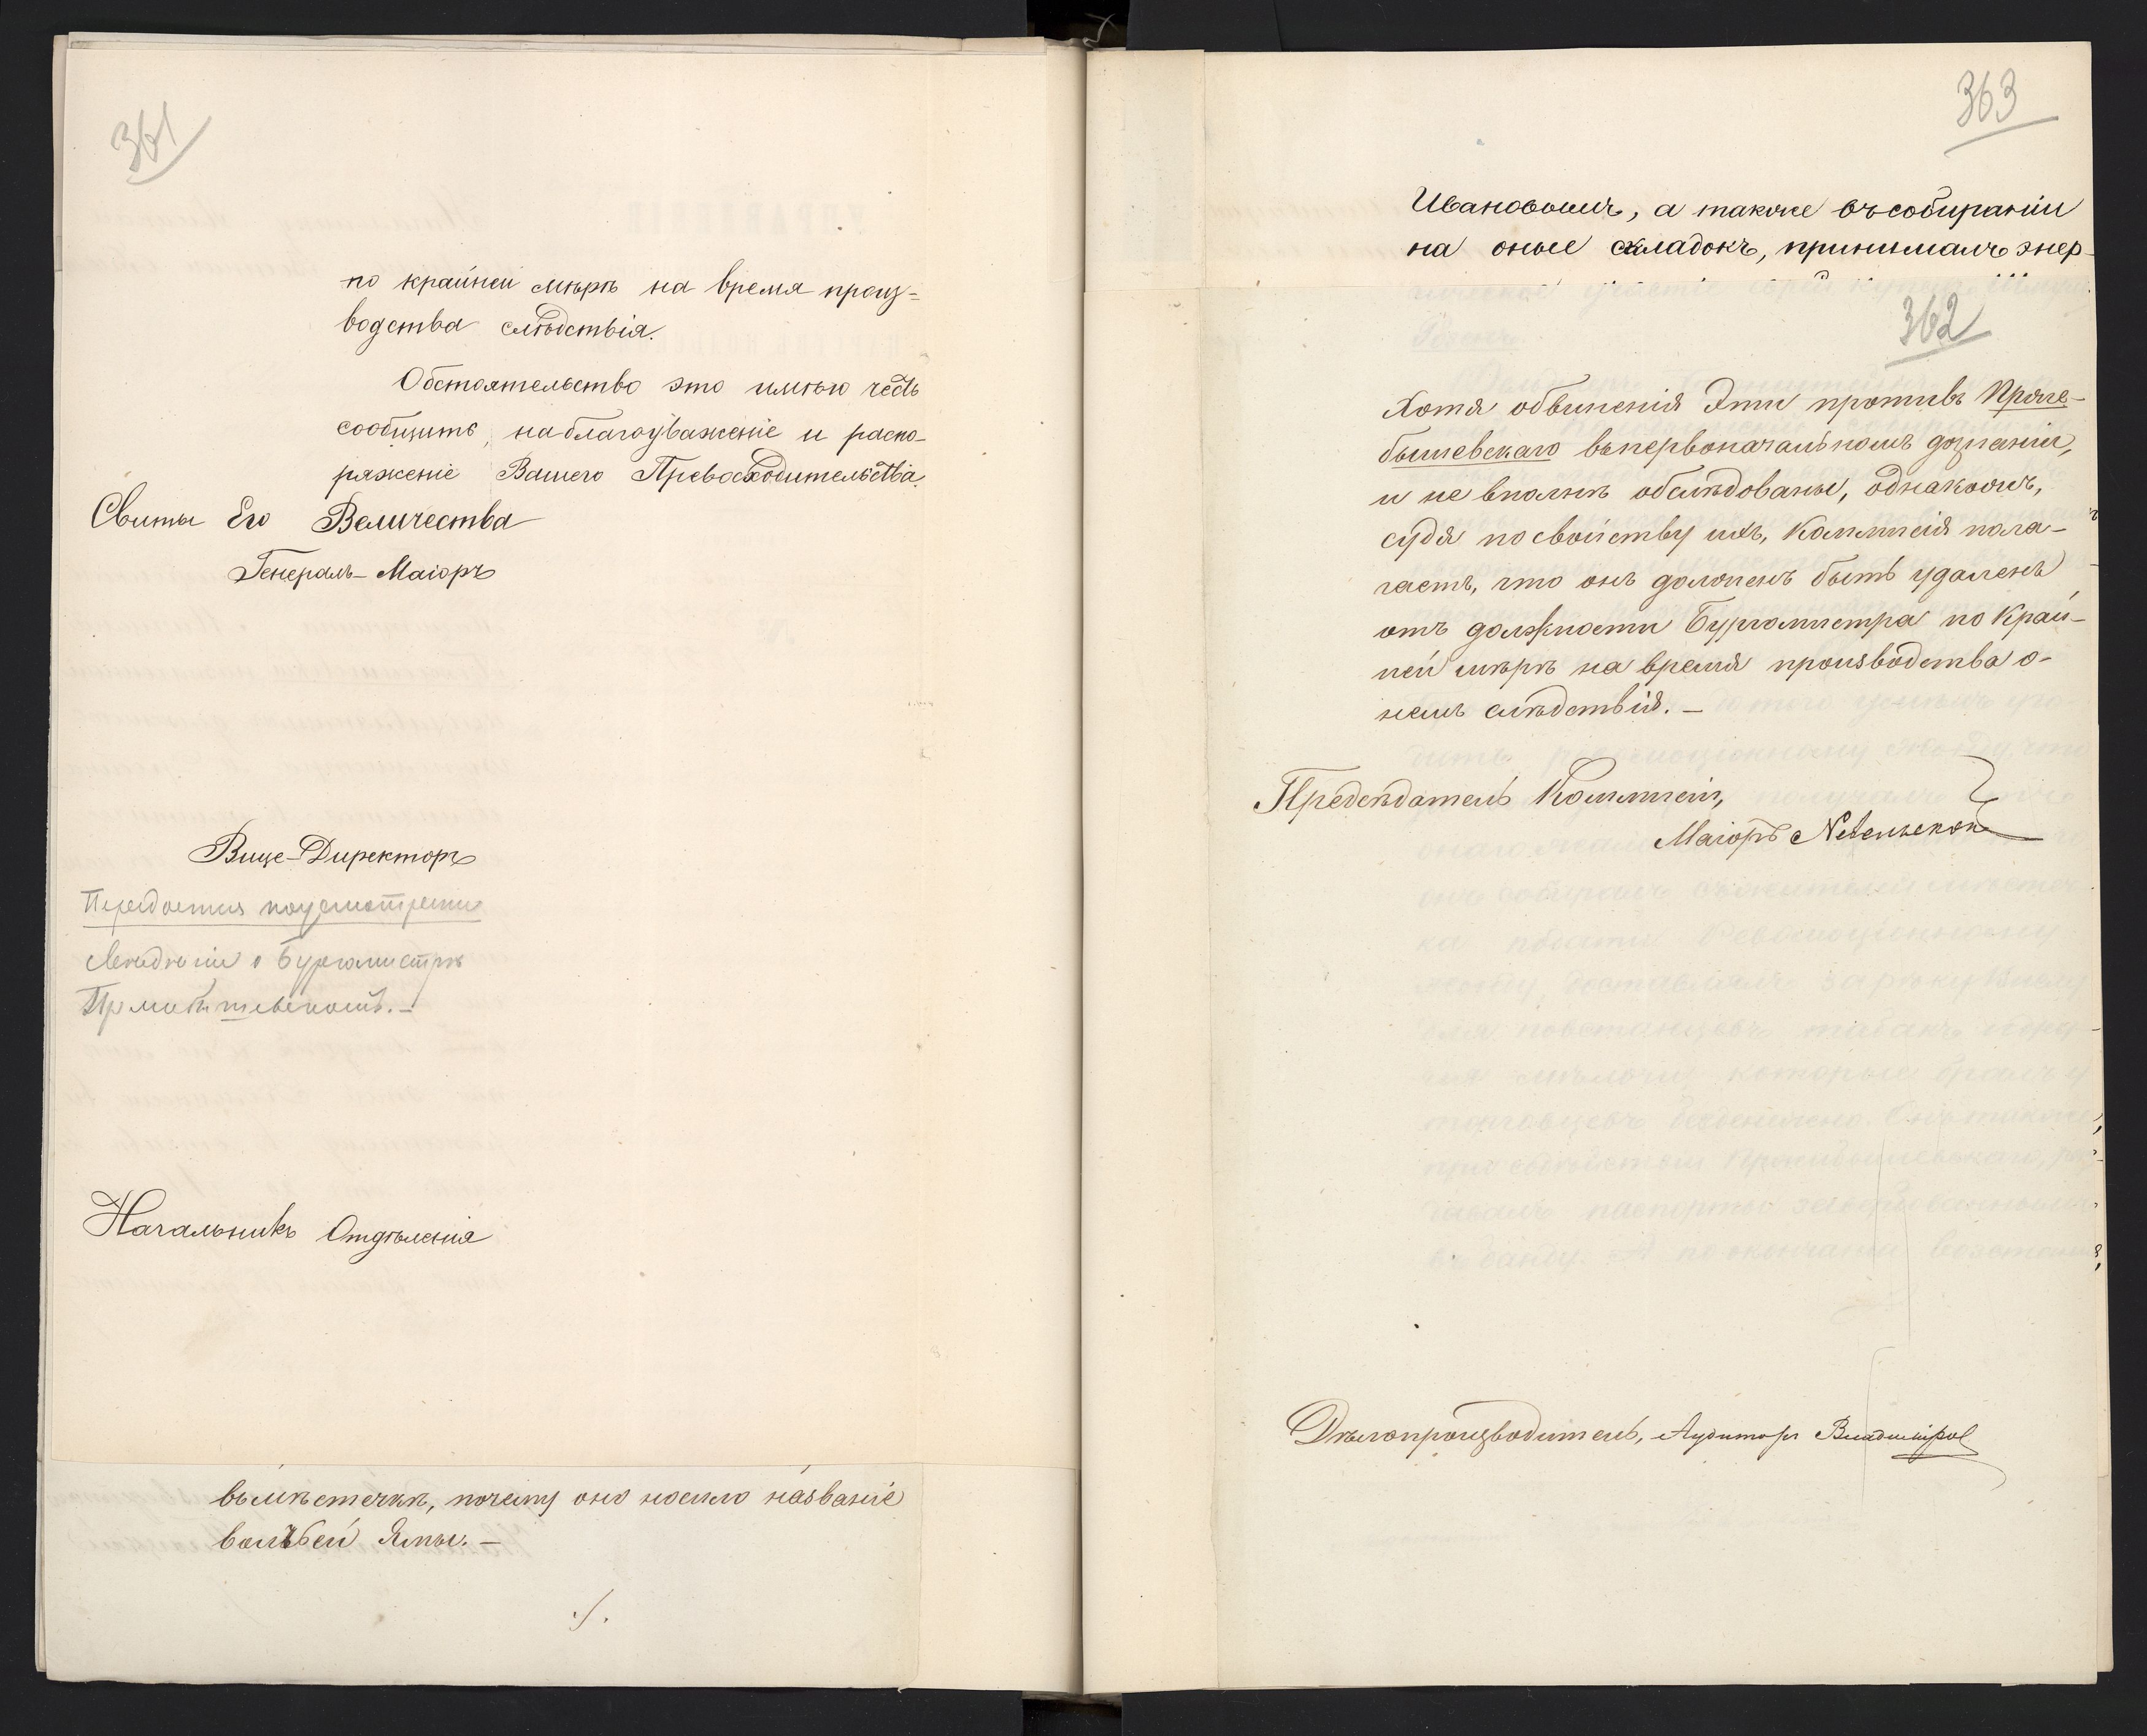 361
по крайней мѣрѣ на время произ=
водства слѣдствія.
Обстоятельство это имѣю честь
сообщить, на благоуваженіе и распо-
ряженіе Вашего Превосходительства.
Свиты Его Величества
Генералъ-Маіоръ
Вице-Директоръ
Бургомистрѣ
Начальникъ Отдѣленія
въ мѣстечкѣ, почему оно носило названіе
волчьей Ямы. —
./.
363
Ивановымъ, а также въ собираніи
на оные складокъ, принималъ энер-
362
Хотя обвиненія Эти противъ Приле-
бышевскаго въ первоначальномъ дознаніи,
и не вполнѣ обслѣдованы, однакожъ,
судя по свойству ихъ, Коммисія пола-
гаетъ, что онъ долженъ быть удаленъ
отъ должности Бургомистра по край-
ней мѣрѣ на время производства о-
немъ слѣдствія. —
Предсѣдатель Коммисіи,
Маіоръ
Дѣлопроизводитель, Аудиторъ Владиміров